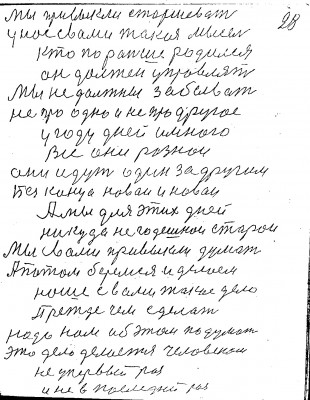 28
Мы привыкли старшеват
у нас свами такая мысел
Кто по раньше родился
он должен управлят
Мы не должны забыват
не про одно и не про другое
у году дней много
Все они разнои
они идут один за другим
Без конца новаи и новаи
А мы для этих дней
никуда негодешнои старои
Мы свами привыкли думат
А потом беремся и делаем
наше с вами такое дело
Прежде чем сделат
надо нам об этом подумат
Это дело делается человеком
не упервый раз
и не в последний раз